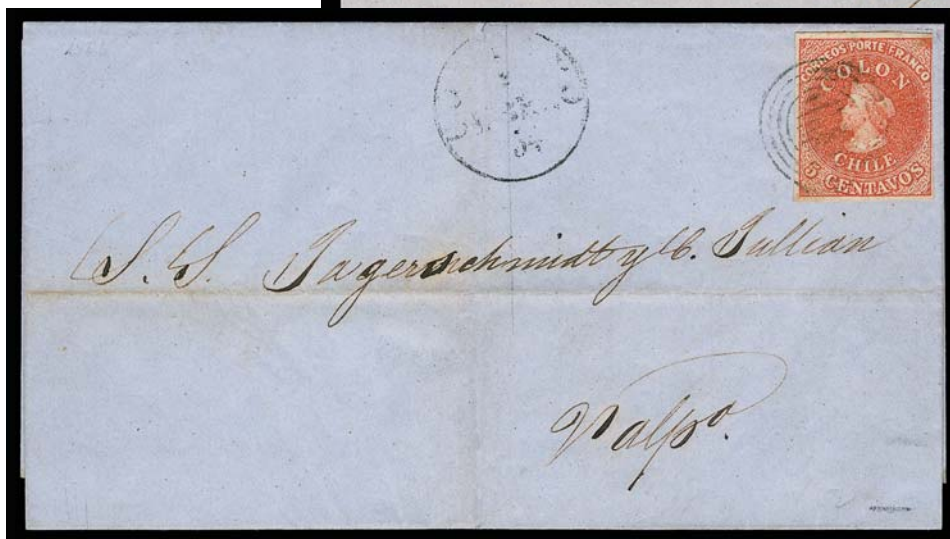 CORREOS PORTE FRANCO
COLON
CHILE
5 CENTAVOS
54
S. S. Jagerschmidt y C. Jullian
Valpo.